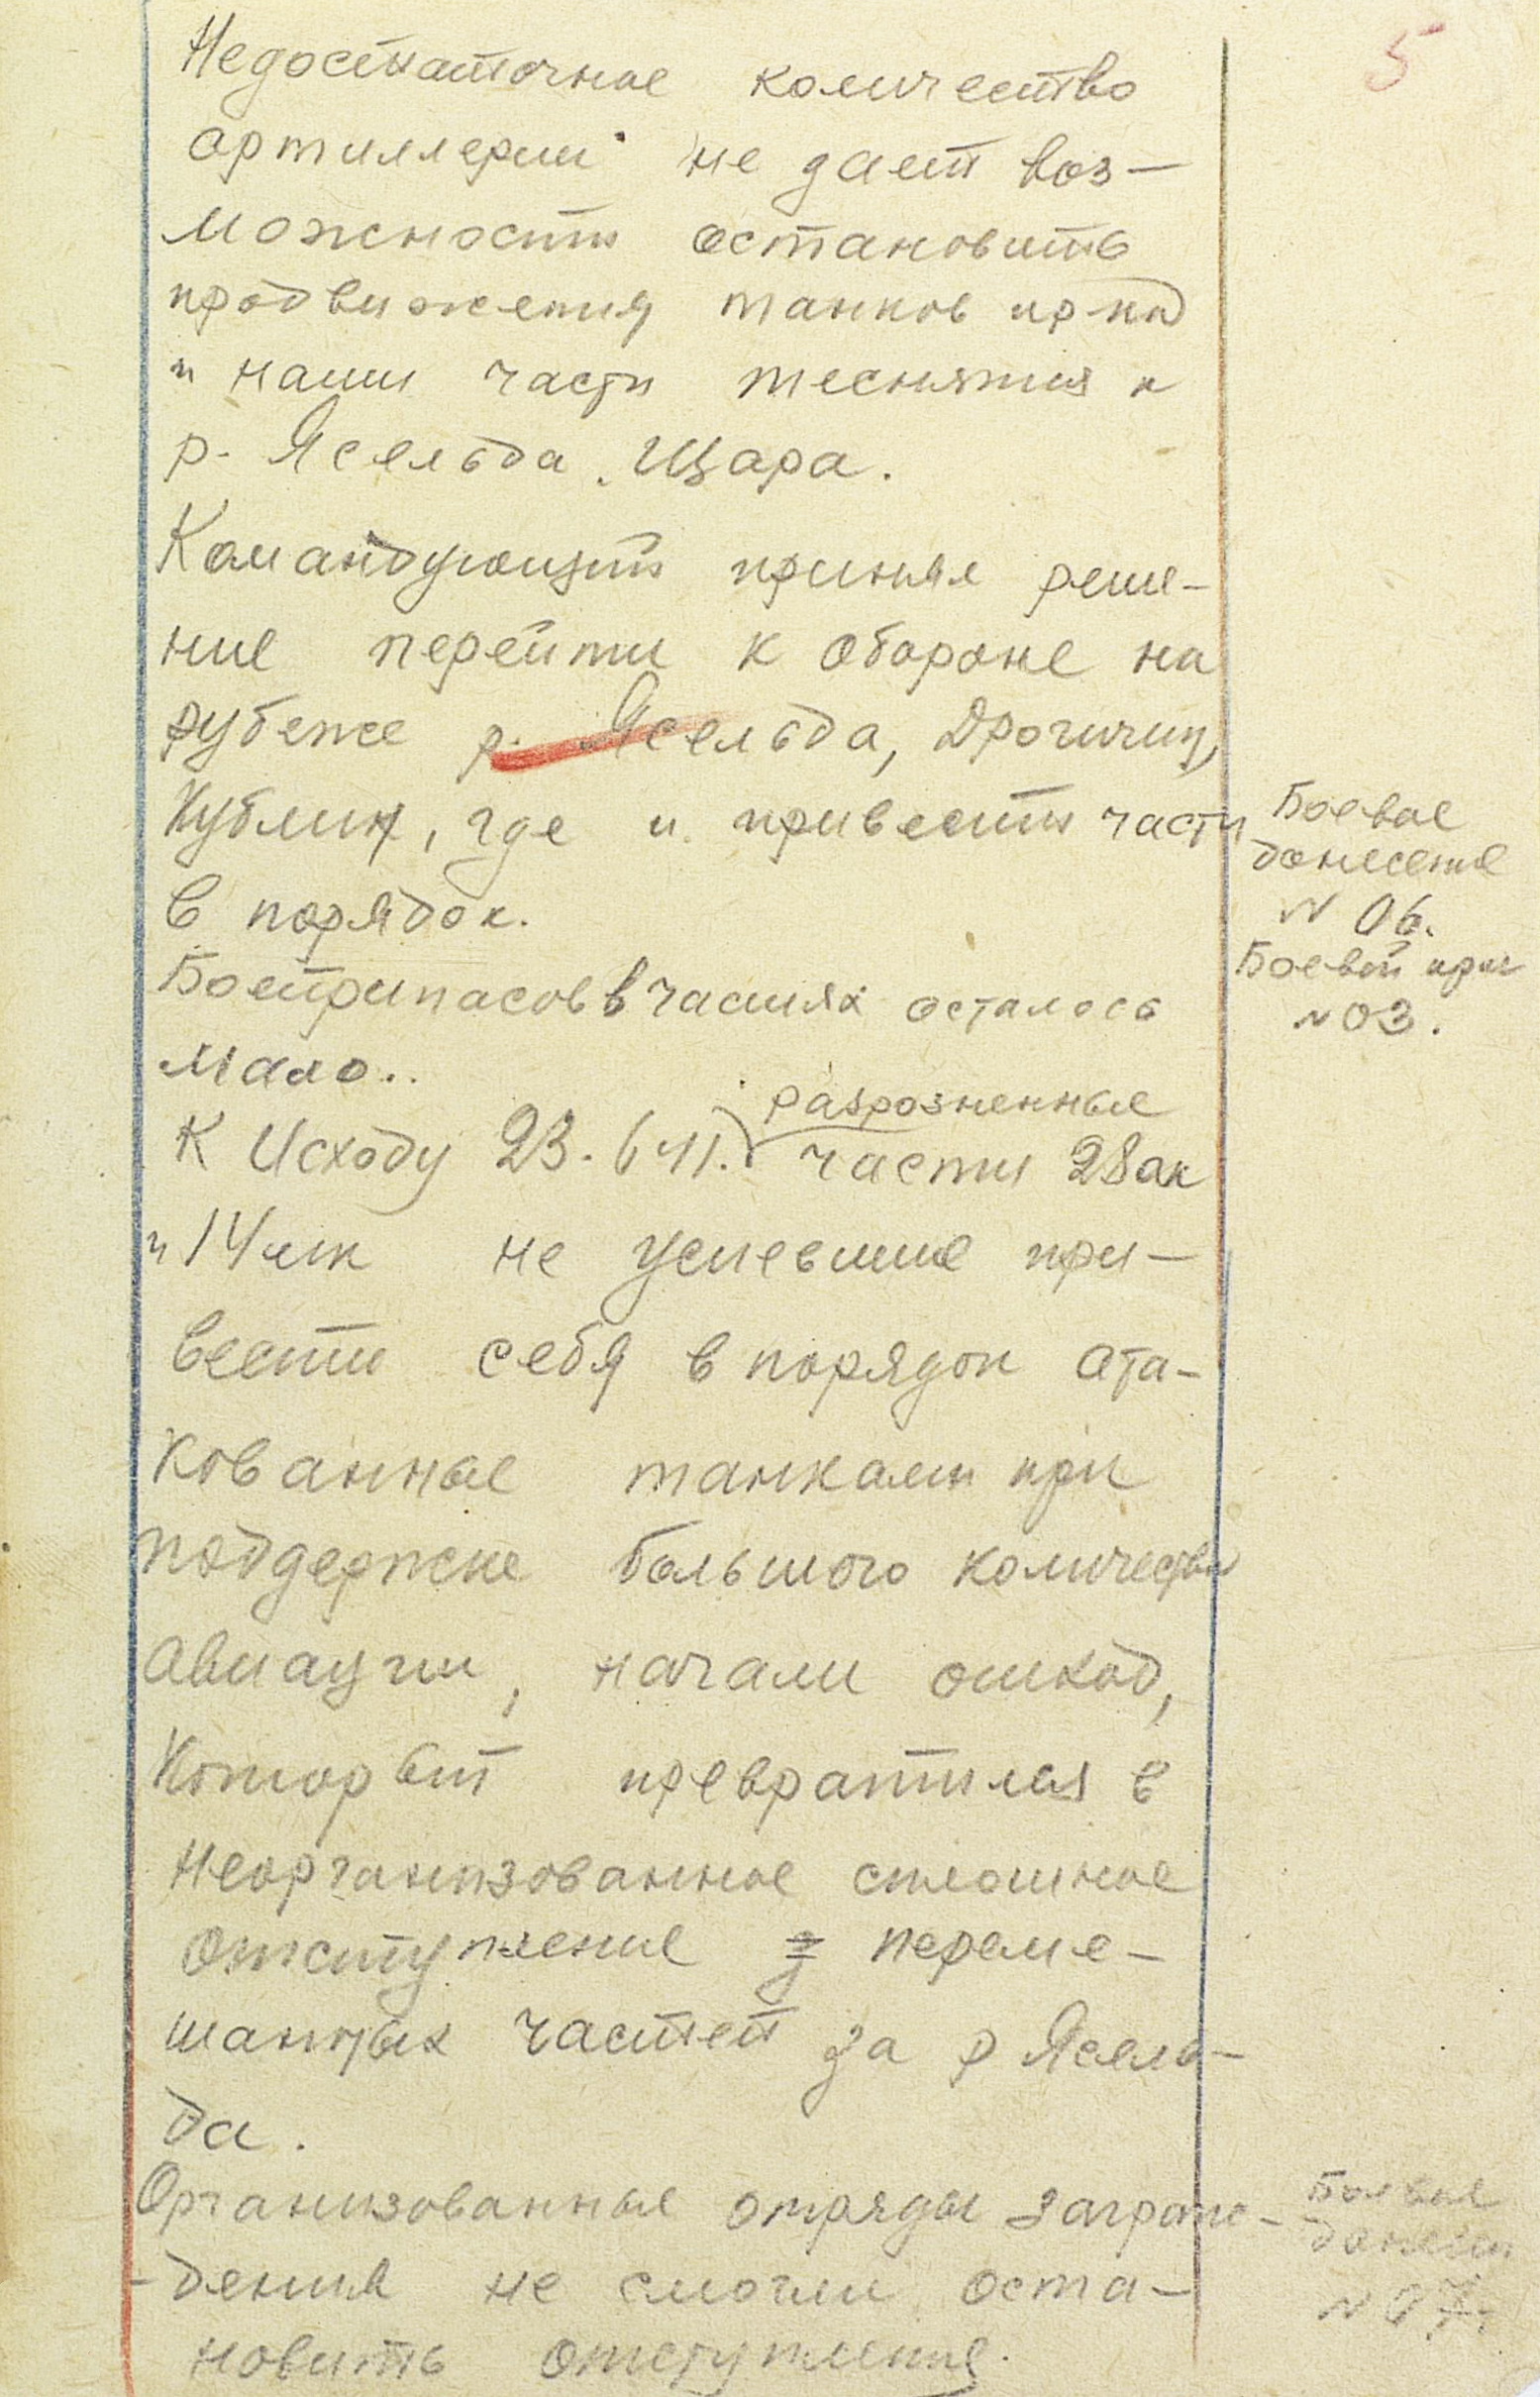 5
Недостаточное количество
артиллерии не дает воз-
можности остановить
продвижения танков пр-ка
и наши части теснятся к
р. Ясельда, Щара.
Командующий принял реше-
ние перейти к обороне на
рубеже р. Ясельда, Дрогичин,
где и привести части
в порядок.
Боевое
донесение
N 06.
Боевой прик
N 03.
Боеприпасов в частях осталось
мало..
разрозненные
К исходу 23.6 41. части 28 ак
и 14 мк не успевшие при-
вести себя в порядок ата-
кованные танками при
поддержке большого количества
авиации, начали отход,
который превратился в
неорганизованное сплошное
отступление переме-
шанных частей за р Ясель-
да.
Организованные отряды загражс-
-дения не смогли оста-
новить отступления.
Боевое
донесен
N 07.